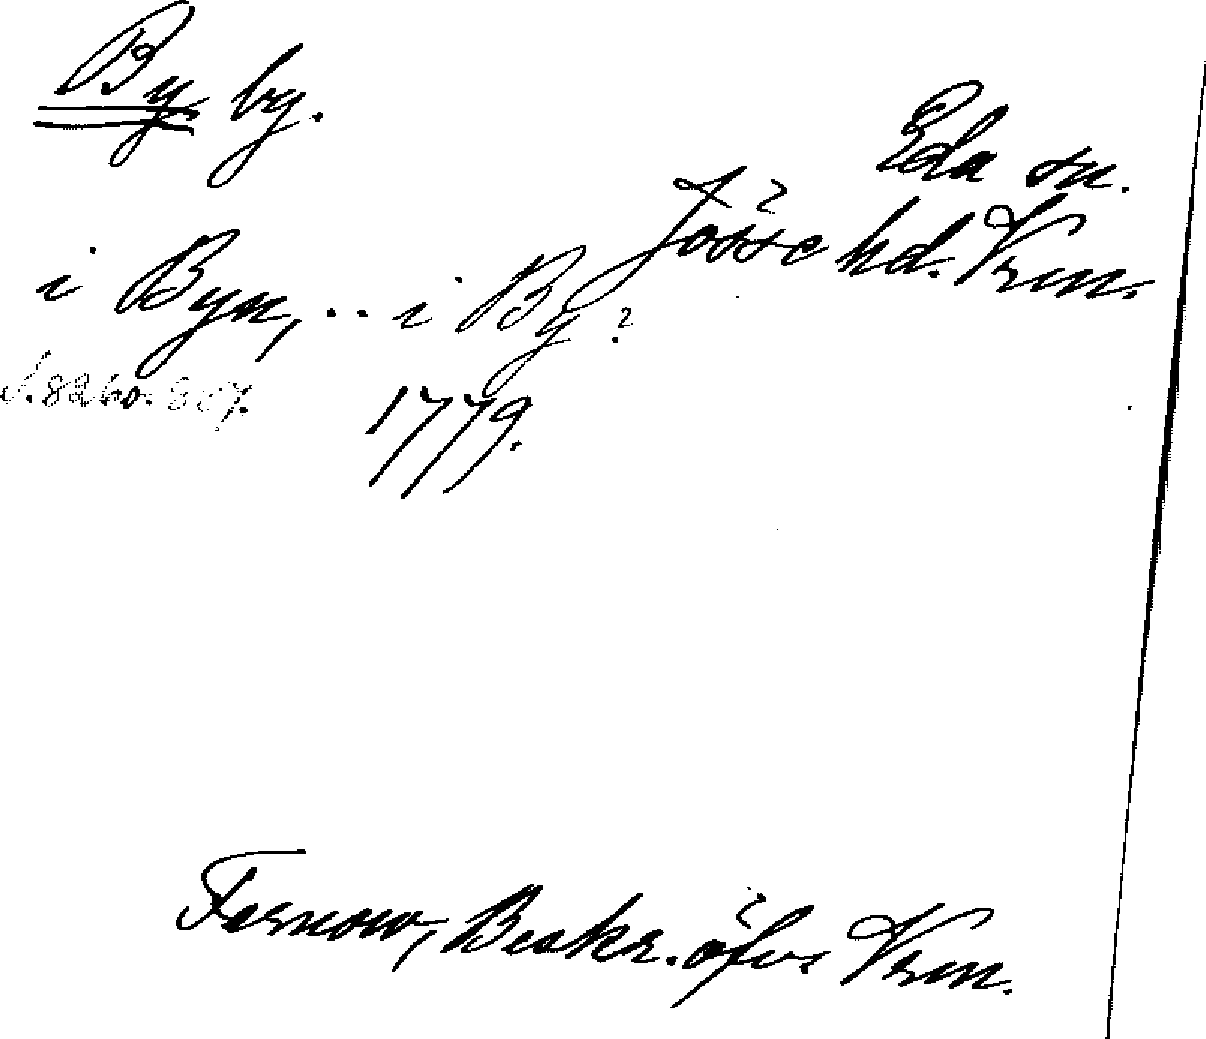 By by.
Eda sn.
Jösse hd. Vrm.
i Byn, .. i By?
1779.
Fernow, Beskr. öfver Vrm.